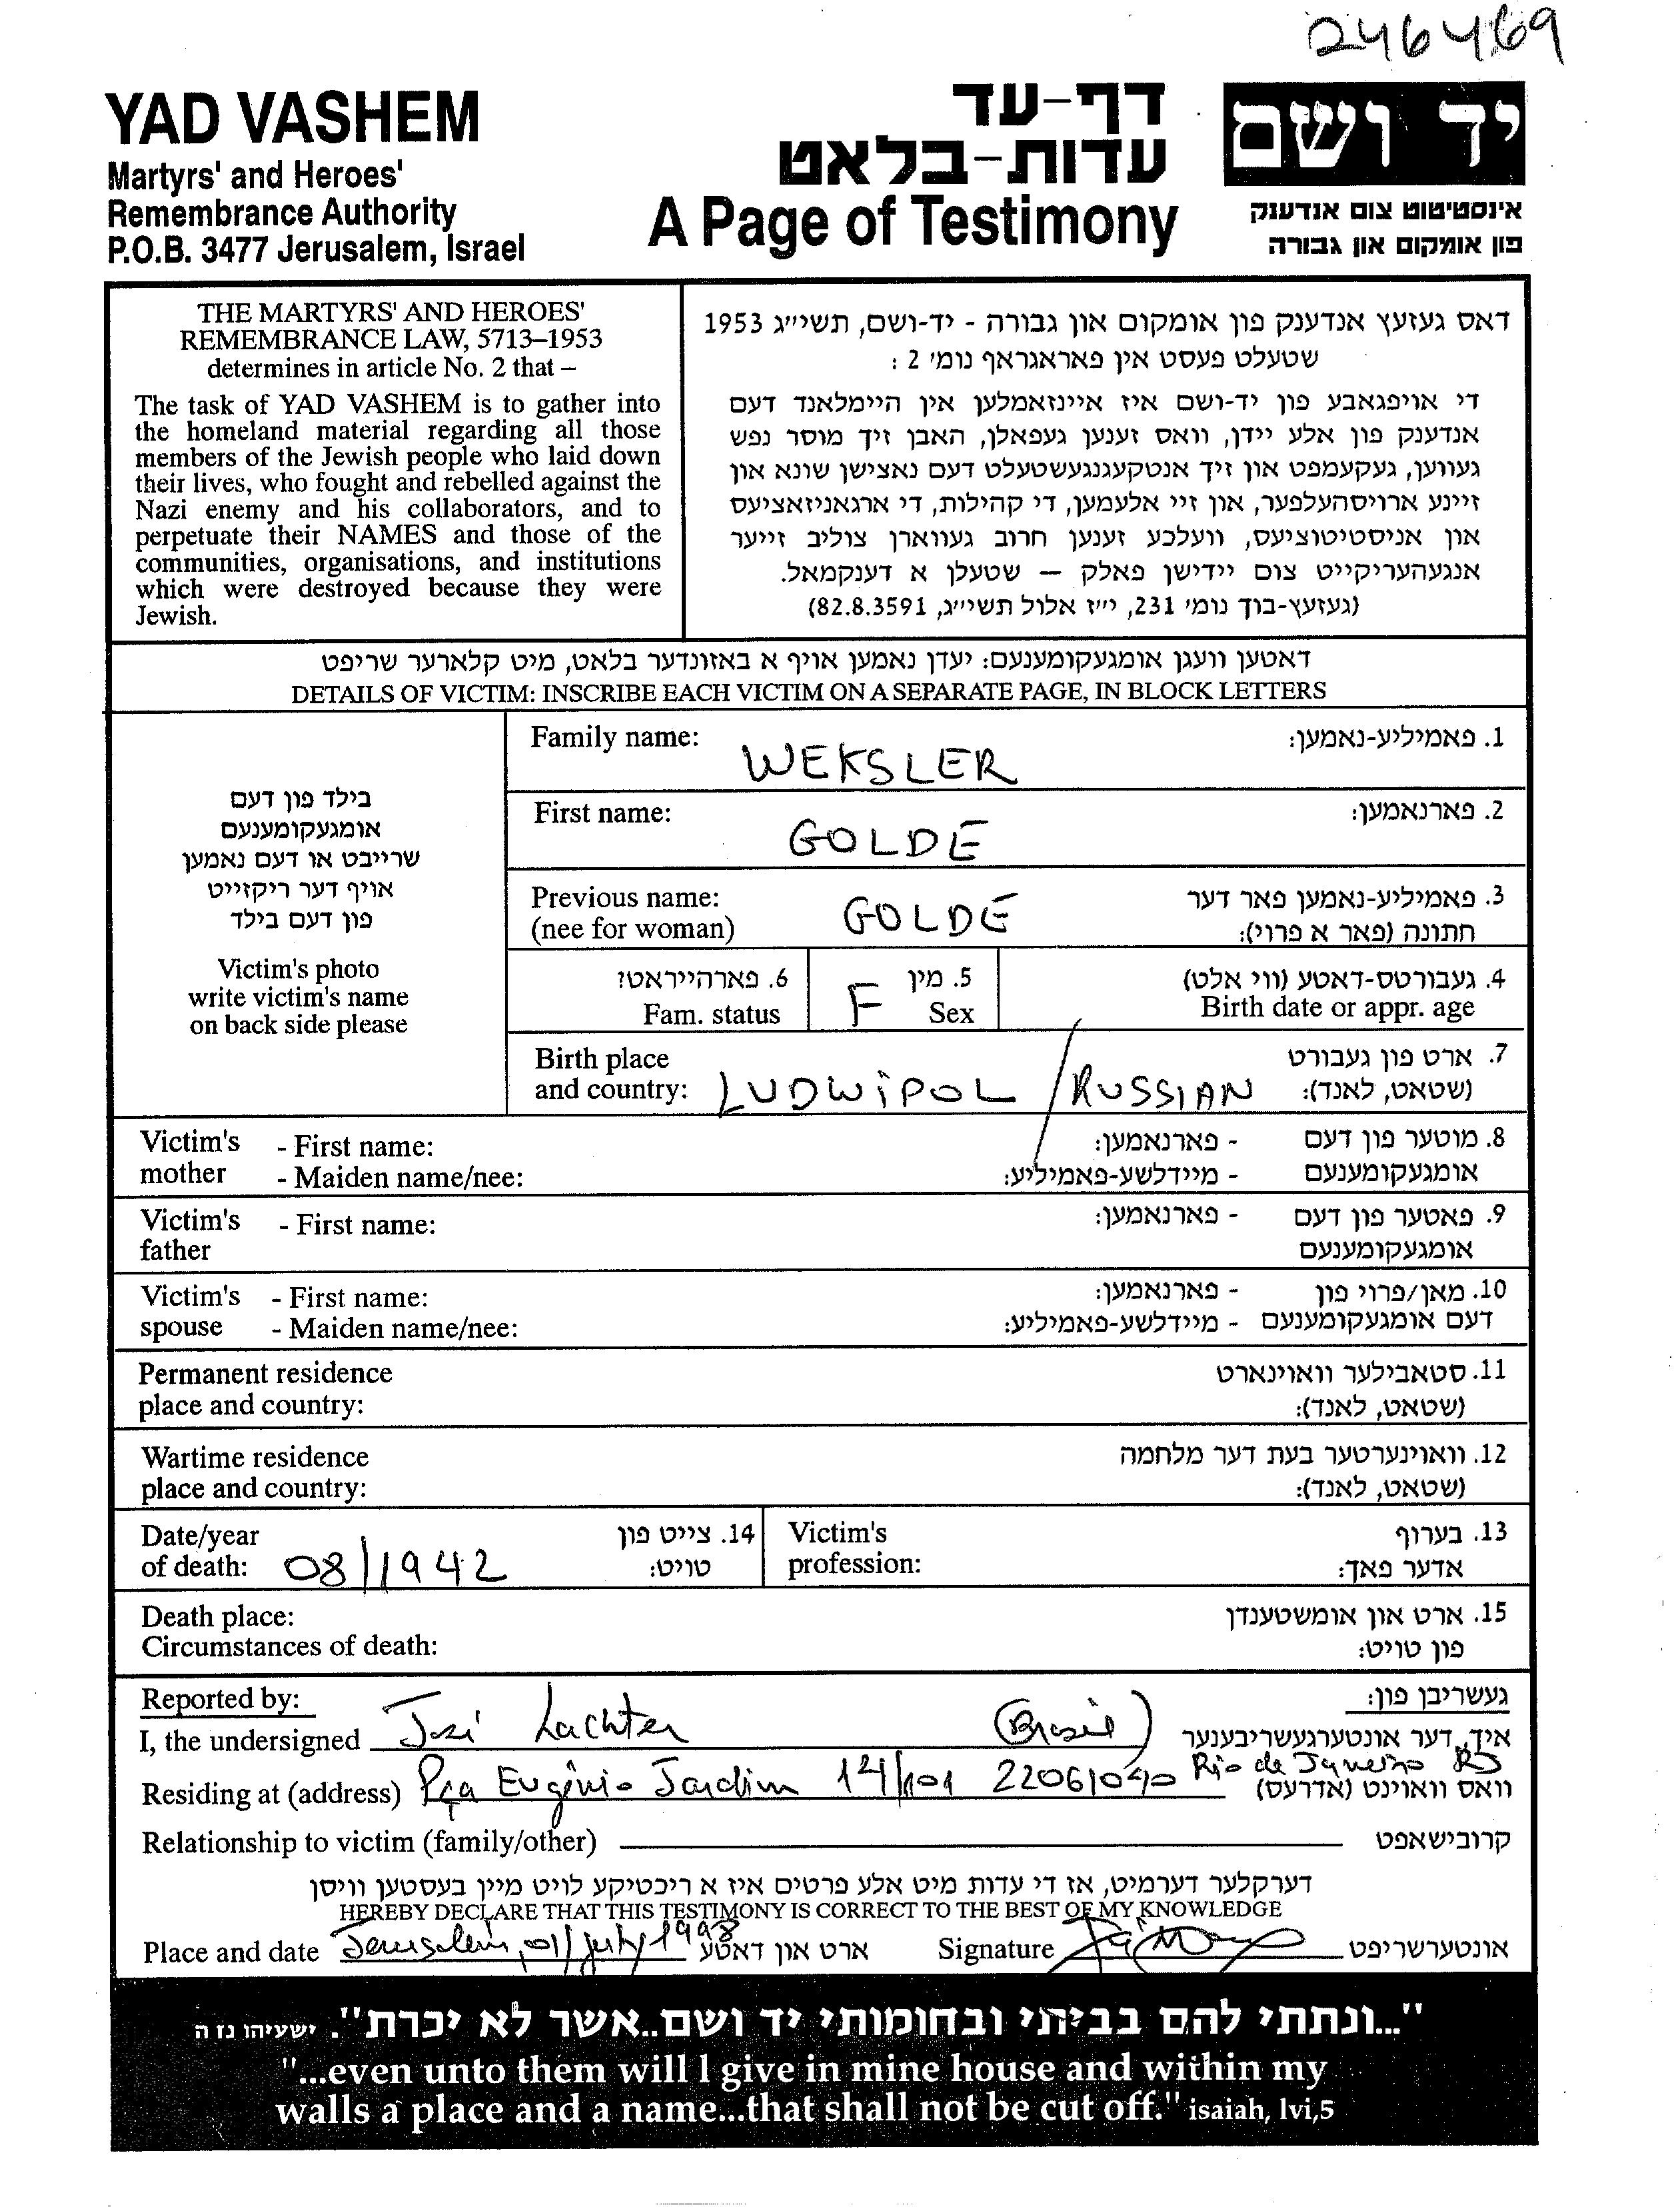 246469
YAD VASHEM
Martyrs' and Heroes'
Remembrance Authority
P.O.B. 3477 Jerusalem, Israel
דף-עד
עדות-בלאט
A Page of Testimony
יד ושם
אינסטיטוט צום אנדענק
פון אומקום און גבורה
THE MARTYRS' AND HEROES'
REMEMBRANCE LAW, 5713–1953
determines in article No. 2 that –
The task of YAD VASHEM is to gather into
the homeland material regarding all those
members of the Jewish people who laid down
their lives, who fought and rebelled against the
Nazi enemy and his collaborators, and to
perpetuate their NAMES and those of the
communities, organisations, and institutions
which were destroyed because they were
Jewish.
דאס געזעץ אנדענק פון אומקום און גבורה - יד-ושם, תשי״ג 1953
שטעלט פעסט אין פאראגראף נומ׳ 2 :
די אויפגאבע פון יד-ושם איז איינזאמלען אין היימלאנד דעם
אנדענק פון אלע יידן, וואס זענען געפאלן, האבן זיך מוסר נפש
געווען, געקעמפט און זיך אנטקעגנגעשטעלט דעם נאצישן שונא און
זיינע ארויסהעלפער, און זיי אלעמען, די קהילות, די ארגאניזאציעס
און אניסטיטוציעס, וועלכע זענען חרוב געווארן צוליב זייער
אנגעהעריקייט צום יידישן פאלק – שטעלן א דענקמאל.
(געזעץ-בוך נומ׳ 231, י״ז אלול תשי״ג, 82.8.3591)
דאטען וועגן אומגעקומענעם: יעדן נאמען אויף א באזונדער בלאט, מיט קלארער שריפט
DETAILS OF VICTIM: INSCRIBE EACH VICTIM ON A SEPARATE PAGE, IN BLOCK LETTERS
בילד פון דעם
אומגעקומענעם
שרייבט או דעם נאמען
אויף דער ריקזייט
פון דעם בילד
Victim's photo
write victim's name
on back side please
Family name: WEKSLER 1. פאמיליע-נאמען:
First name: GOLDE 2. פארנאמען:
Previous name: GOLDE 3. פאמיליע-נאמען פאר דער
(nee for woman) חתונה (פאר א פרוי):
6. פארהייראט? 5. מין 4. געבורטס-דאטע (ווי אלט)
Fam. status F Sex Birth date or appr. age
Birth place 7. ארט פון געבורט
and country: LUDWIPOL / RUSSIAN (שטאט, לאנד):
Victim's - First name: - פארנאמען: 8. מוטער פון דעם
mother - Maiden name/nee: - מיידלשע-פאמיליע: אומגעקומענעם
Victim's - First name: - פארנאמען: 9. פאטער פון דעם
father אומגעקומענעם
Victim's - First name: - פארנאמען: 10. מאן/פרוי פון
spouse - Maiden name/nee: - מיידלשע-פאמיליע: דעם אומגעקומענעם
Permanent residence 11. סטאבילער וואוינארט
place and country: (שטאט, לאנד):
Wartime residence 12. וואוינערטער בעת דער מלחמה
place and country: (שטאט, לאנד):
Date/year 14. צייט פון Victim's 13. בערוף
of death: 08/1942 טויט: profession: אדער פאך:
Death place: 15. ארט און אומשטענדן
Circumstances of death: פון טויט:
Reported by: געשריבן פון:
I, the undersigned José Lachter (Brasil) איך, דער אונטערגעשריבענער
Residing at (address) Pça Eugênio Jardim 14/101 22061040 Rio de Janeiro RJ וואס וואוינט (אדרעס)
Relationship to victim (family/other) קרובישאפט
דערקלער דערמיט, אז די עדות מיט אלע פרטים איז א ריכטיקע לויט מיין בעסטען וויסן
HEREBY DECLARE THAT THIS TESTIMONY IS CORRECT TO THE BEST OF MY KNOWLEDGE
Place and date Jerusalem, 01/July/1998 ארט און דאטע Signature אונטערשריפט
"...ונתתי להם בביתי ובחומותי יד ושם..אשר לא יכרת". ישעיהו נז ה
"...even unto them will I give in mine house and within my
walls a place and a name...that shall not be cut off." isaiah, lvi,5